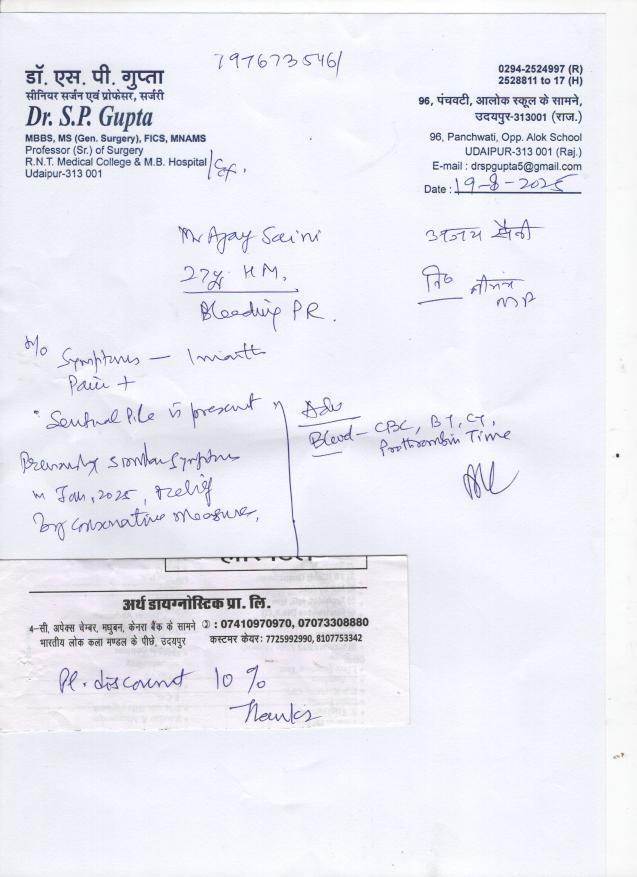 7976735461
डॉ. एस. पी. गुप्ता
सीनियर सर्जन एवं प्रोफेसर, सर्जरी
Dr. S.P. Gupta
MBBS, MS (Gen. Surgery), FICS, MNAMS
Professor (Sr.) of Surgery
R.N.T. Medical College & M.B. Hospital
Udaipur-313 001
0294-2524997 (R)
2528811 to 17 (H)
96, पंचवटी, आलोक स्कूल के सामने,
उदयपुर-313001 (राज.)
96, Panchwati, Opp. Alok School
UDAIPUR-313 001 (Raj.)
E-mail : drspgupta5@gmail.com
Date : 19-8-2025
Mr Ajay Saini
27 yr HM.
Bleeding PR.
अजय सैनी
नि०
H/o Symptoms – 1 month
Pain +
Sentinal Pile is present
Previously similar symptoms
in Jan, 2025, relief
by conservative measure,
Adv
Blood – CBC, BT, CT,
Prothrombin Time
अर्थ डायग्नोस्टिक प्रा. लि.
4-सी, अपेक्स चेम्बर, मधुबन, केनरा बैंक के सामने : 07410970970, 07073308880
भारतीय लोक कला मण्डल के पीछे, उदयपुर कस्टमर केयर: 7725992990, 8107753342
Pl. discount 10%
Thanks